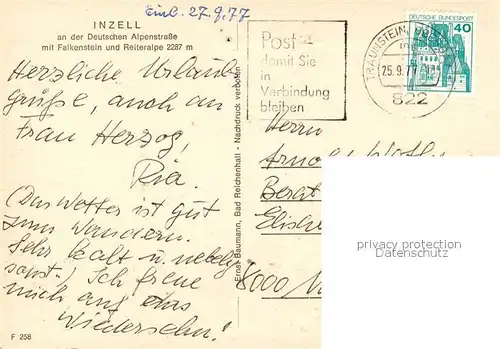 INZELL
an der Deutschen Alpenstraße
mit Falkenstein und Reiteralpe 2287 m
Einl. 27.9.77
Herzliche Urlaubs
grüße, auch an
Frau Herzog,
Ria.
(Das Wetter ist gut
zum Wandern.
Sehr kalt u. nebelig
sonst!) Ich freue
mich auf das
Wiedersehn!
F 258
Ernst Baumann, Bad Reichenhall - Nachdruck verboten
Post
damit Sie
in
Verbindung
bleiben
TRAUNSTEIN
25.9.77
822
DEUTSCHE BUNDESPOST
40
Herrn
8000
privacy protection
Datenschutz